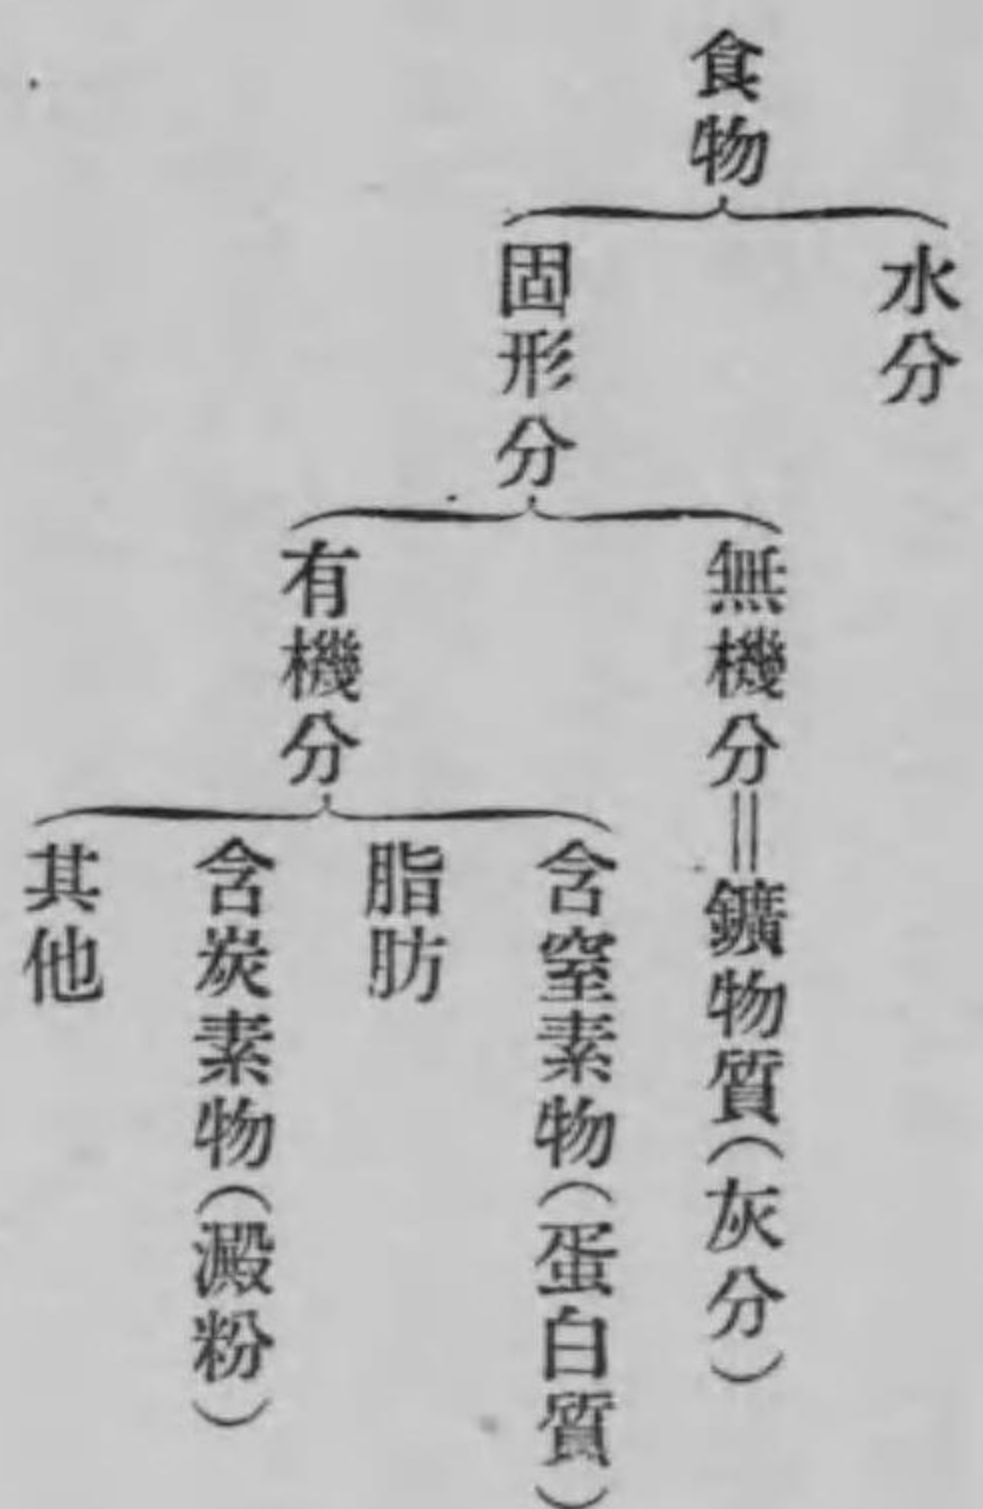 食物
水分
固形分
無機分=鑛物質(灰分)
有機分
含窒素物(蛋白質)
脂肪
含炭素物(澱粉)
其他